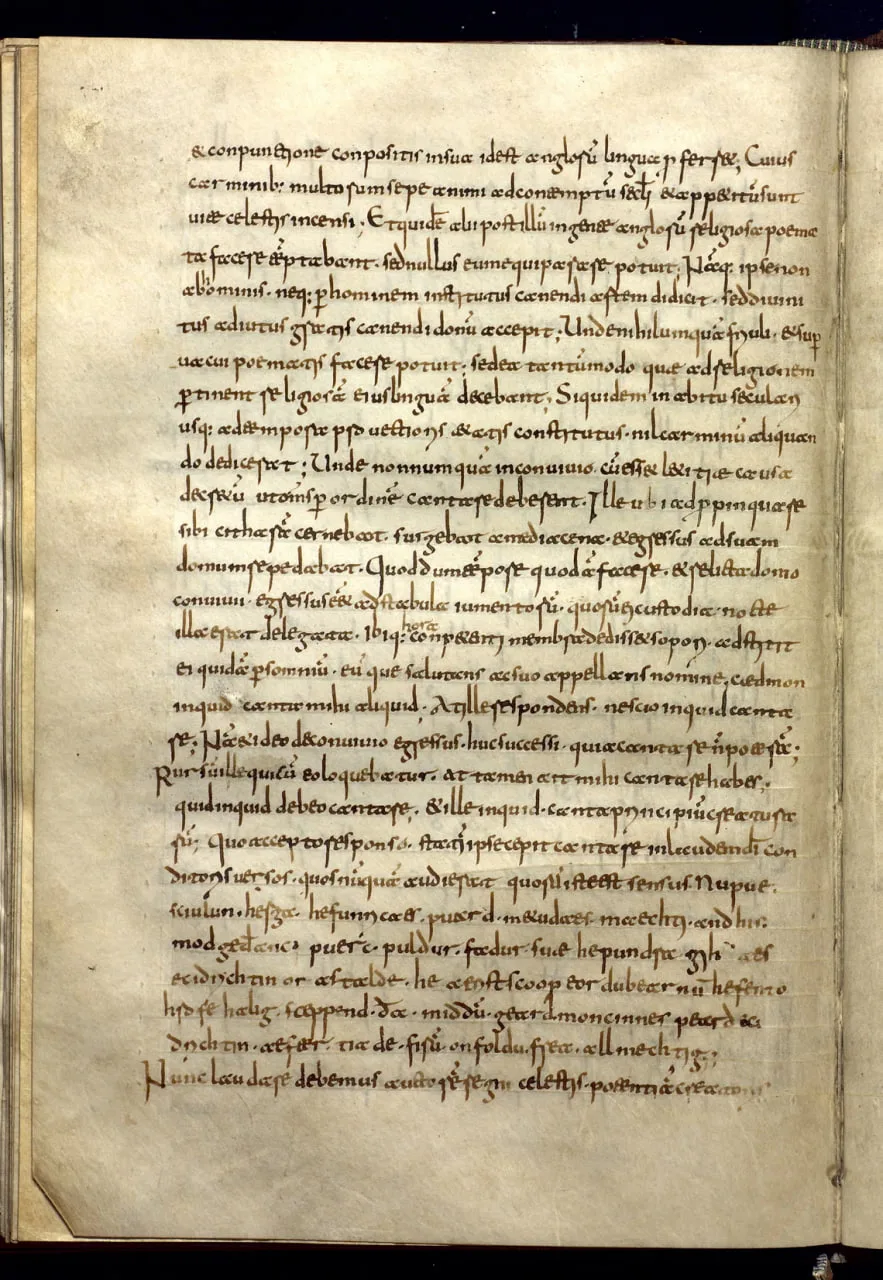 & conpunctione conpositis in sua id est anglosū lingua pferre&; Cuius
carminib; multorum sepe animi ad contemptū sec̄li & app&itū sunt
uitae celestis incensi; Et quidē alii post illū in gente anglorū religiosa poema
ta facere tēptabant. sed nullus eum equiparare potuit; Nāq; ipse non
ab hominis. neq; p hominem institutus canendi artem didicit. sed diuini
tus adiutus gratis canendi donū accepit; Unde nihil umquā friuoli. & sup
uacui poematis facere potuit. sed ea tantūmodo quae ad religionem
ptinent religiosā eius linguā decebant; Siquidem in abitu seculari
usq; ad tempora prouectioris &atis constitutus. nil carminū aliquan
do dedicerat; Unde nonnumquā in conuiuio. cū ess& l&itiae causa
decr&ū ut om̄s p ordinē cantare deberent. Ille ubi adppinquare
sibi citharā cernebat. surgebat a media cena. & egressus ad suam
domum repedabat. Quod dum tēpore quodā facere. & relicta domo
conuiuii. egressus ēet ad stabula iumentorū. quorū ei custodia nocte
illa erat delegata. Ibiq; hora conpetenti membra dediss& sopori. adstitit
ei quidā p somniū. eūque salutans ac suo appellans nomine, caedmon
inquid canta mihi aliquid. At ille respondens. nescio inquid canta
re; Nā & ideo de conuiuio egressus. huc successi. quia cantare n̄ poterā;
Rursū ille qui cū eo loquebatur. At tamen ait mihi cantare habes.
quid inquid debeo cantare. & ille inquid. canta principiū creatura
rū; Quo accepto responso. statī ipse cepit cantare in laudem dī con
ditoris uersos. quos nūquā audierat quorū iste est sensus. Nu pue.
sciulun. hergea. hefunricaes. puard. metudaes. maechti. and his.
modgedanc. puerc. puldur. fadur. suae he pundra gihuaes
eci drichtin or astalde. he aerist scoop eordu bearnū hefen to
hrofe halig. sceppend. da. middū. geard. moncinnes peard eci
drichtin. aefter. tiade. firū. on foldu. frea. allmechtig;
Nunc laudare debemus auctorē regni celestis. potentiā creatoris